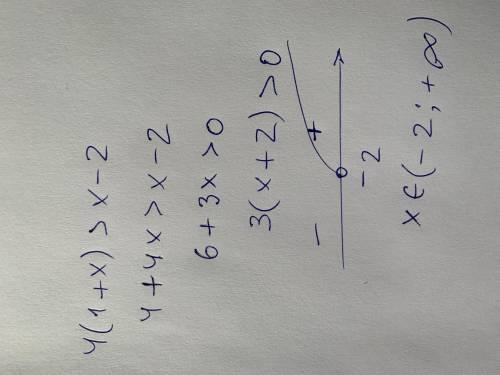 4(1+x)>x-2
4+4x>x-2
6+3x>0
3(x+2)>0
- +
-2
x∈(-2;+∞)